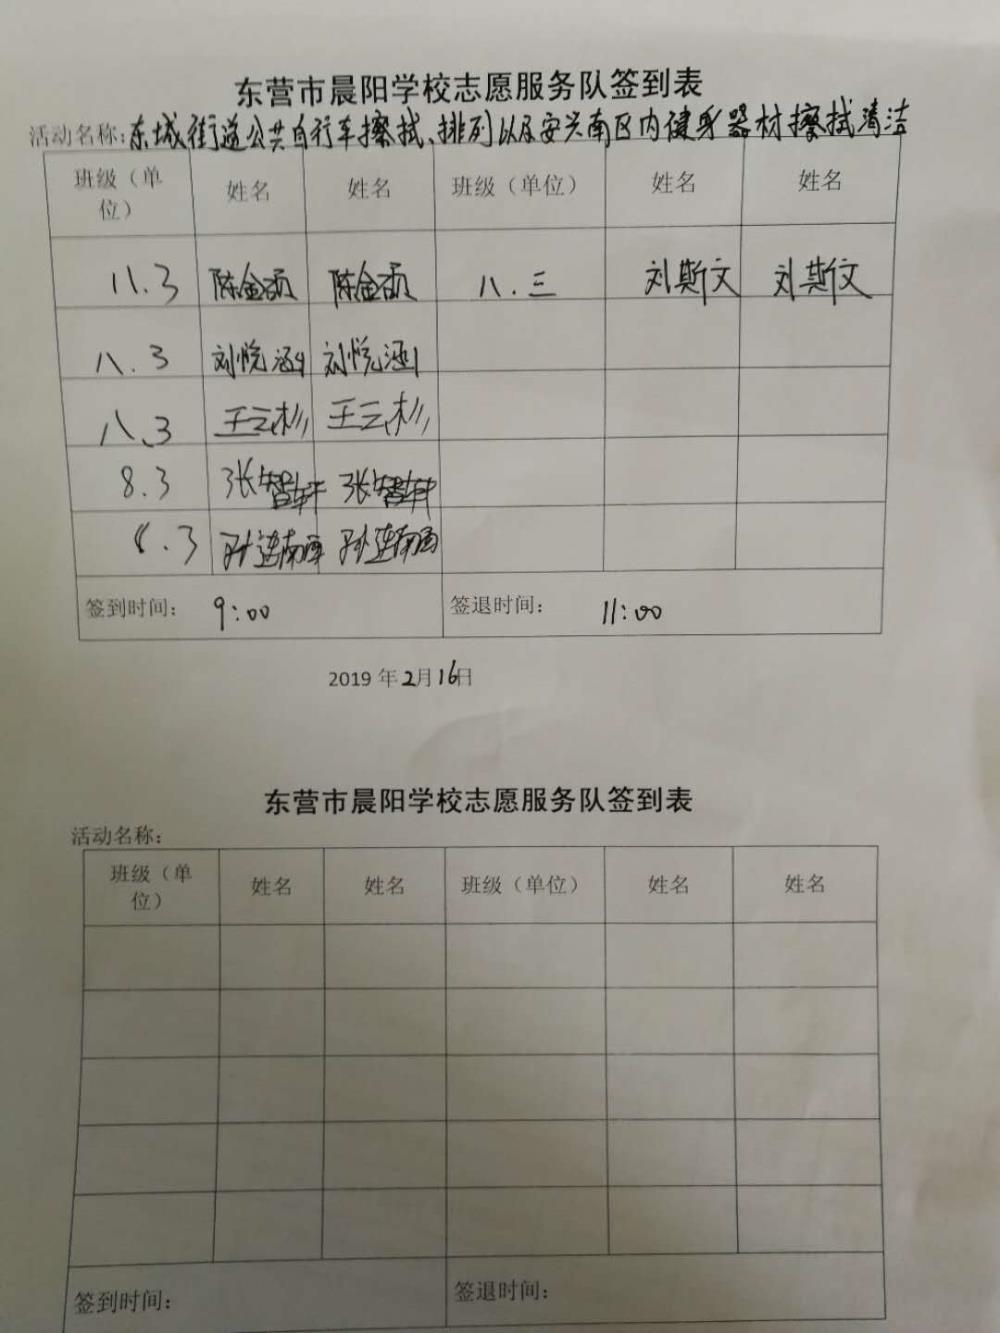 东营市晨阳学校志愿服务队签到表
活动名称:东城街道公共自行车擦拭、排列以及安兴南区内健身器材擦拭清洁
班级（单位） 姓名 姓名 班级（单位） 姓名 姓名
八.3 陈金硕 陈金硕 八.三 刘斯文 刘斯文
八.3 刘悦涵 刘悦涵
八.3 王云杉 王云杉
8.3 张智轩 张智轩
8.3 孙连南
签到时间： 9:00 签退时间： 11:00
2019年2月16日
东营市晨阳学校志愿服务队签到表
活动名称：
班级（单位） 姓名 姓名 班级（单位） 姓名 姓名
签到时间： 签退时间：